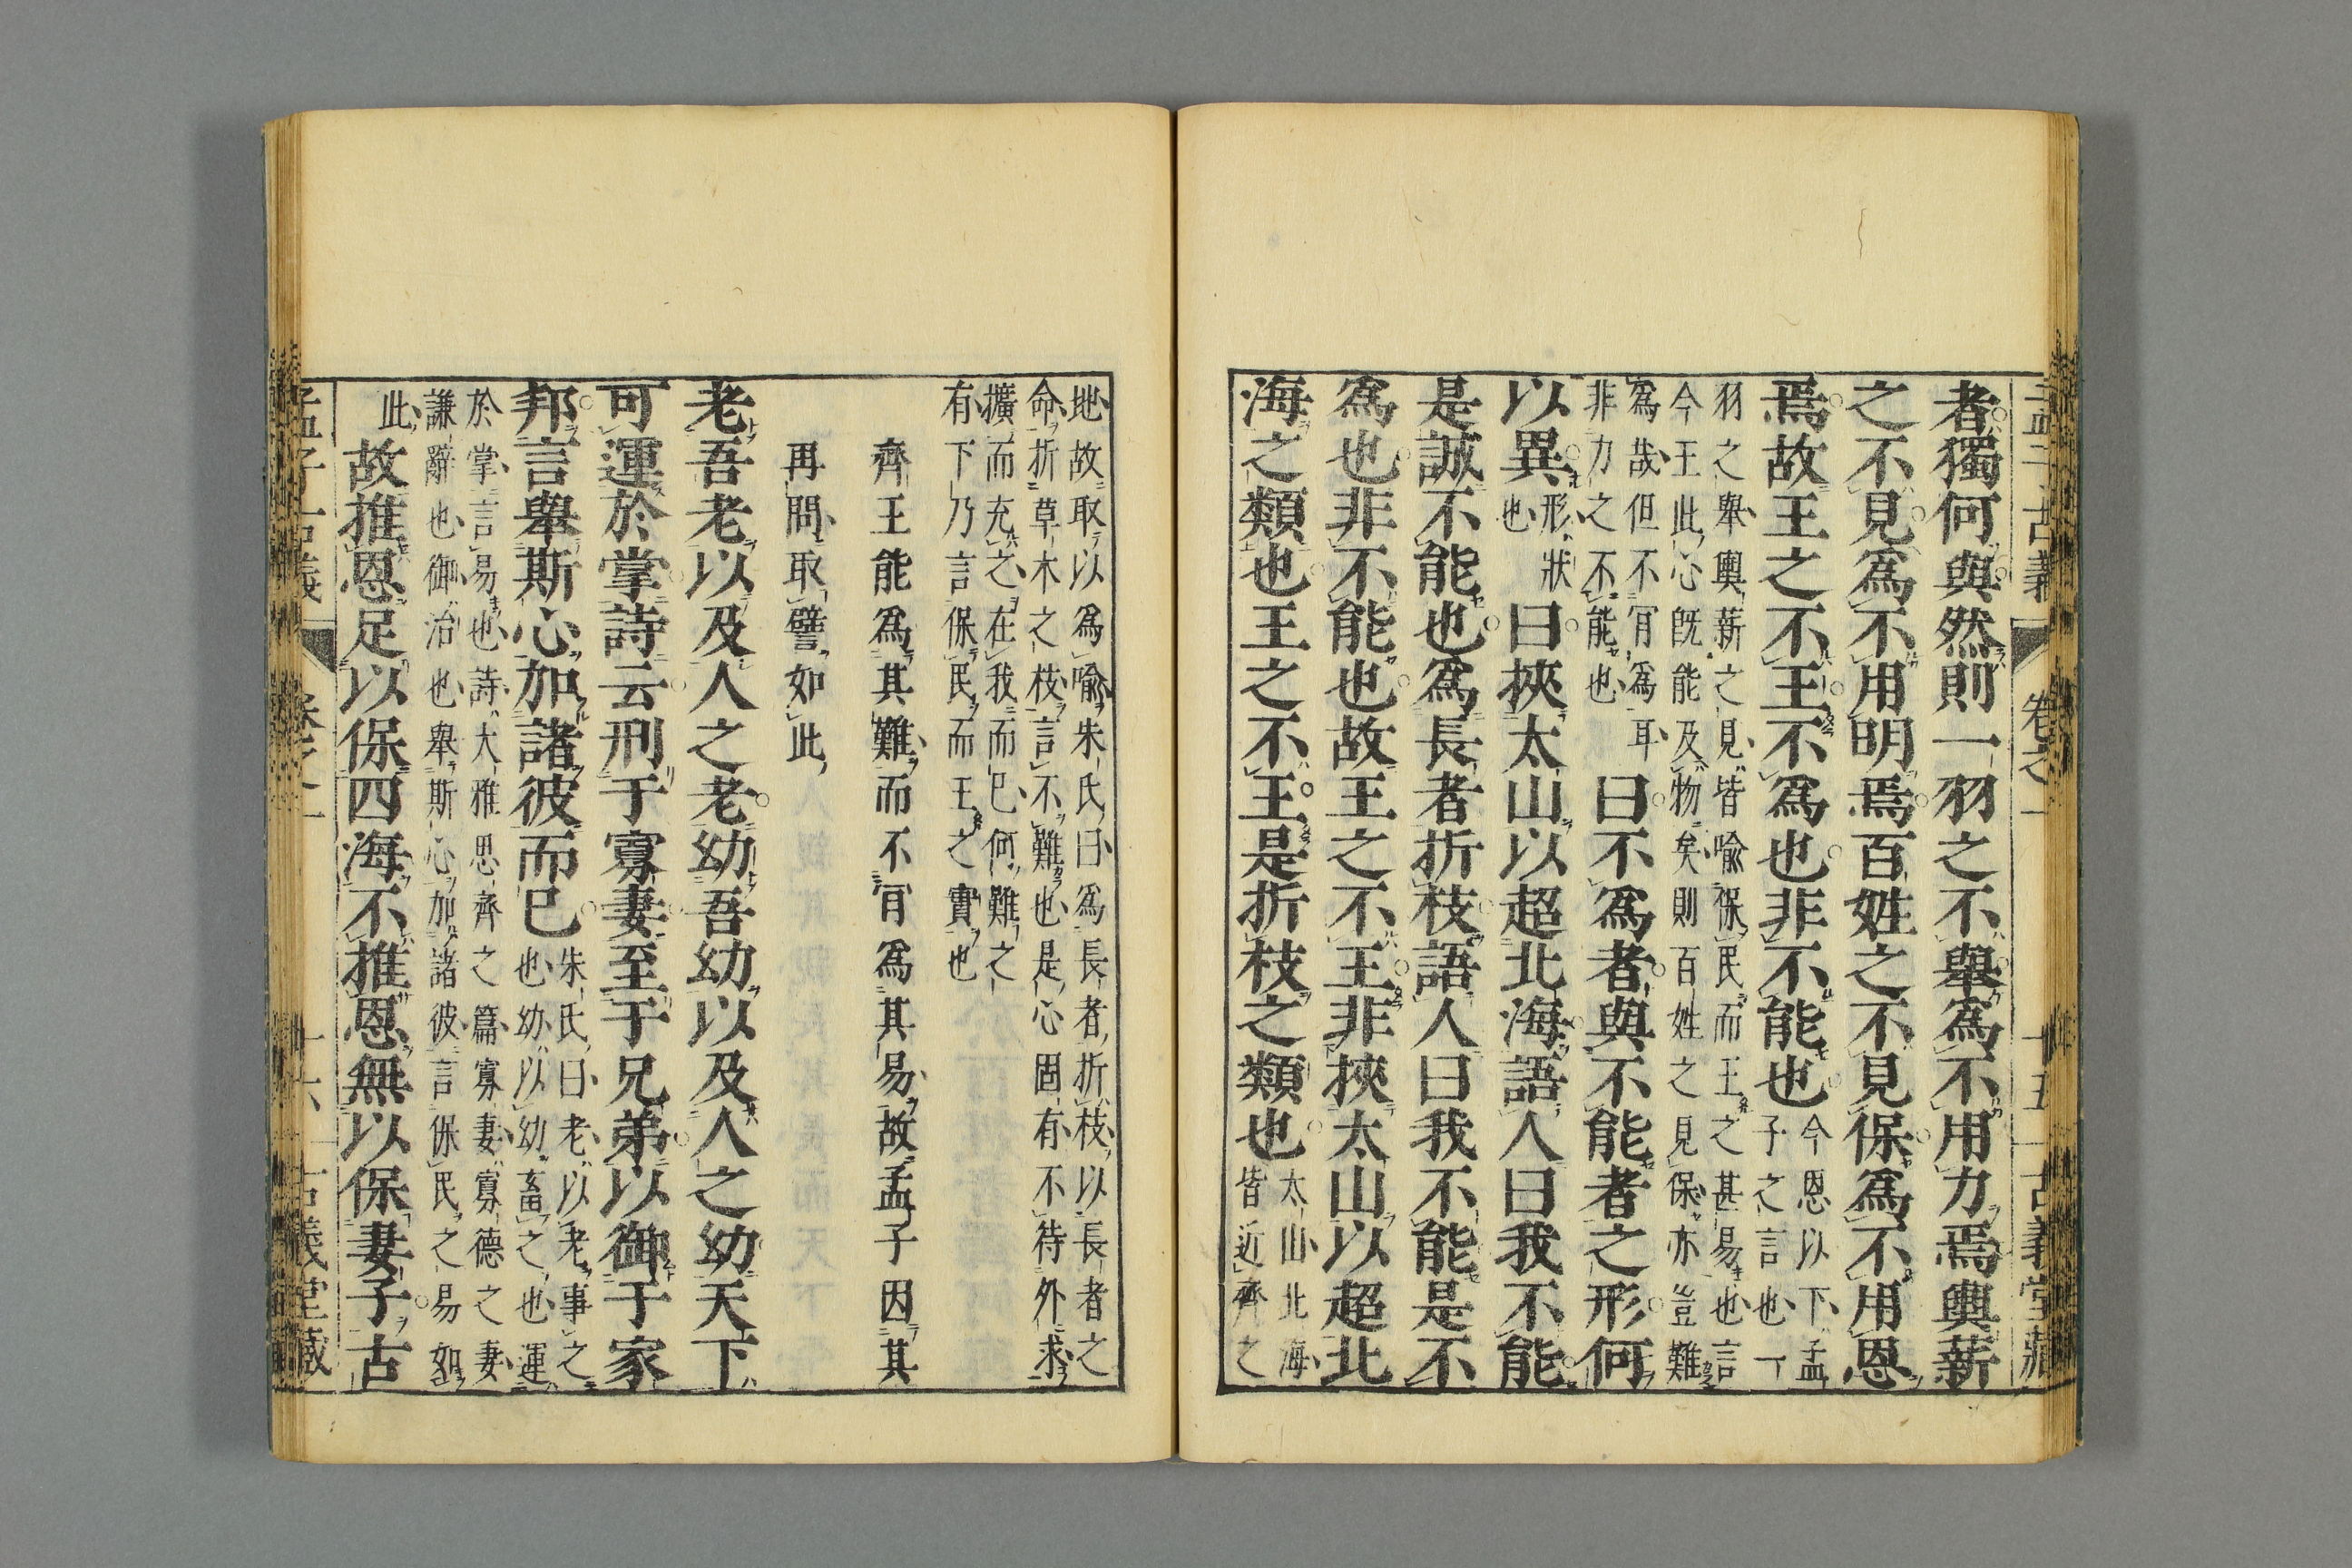 者獨何與然則一羽之不舉爲不用力焉輿薪
之不見爲不用明焉百姓之不見保爲不用恩
焉故王之不王不爲也非不能也
今恩以下孟
子之言也一
羽之舉輿薪之見皆喩保民而王之甚易也言
今王此心旣能及物矣則百姓之見保亦豈難
爲哉但不肎爲耳
非力之不能也
曰不爲者與不能者之形何
以異
形狀
也
曰挾太山以超北海語人曰我不能
是誠不能也爲長者折枝語人曰我不能是不
爲也非不能也故王之不王非挾太山以超北
海之類也王之不王是折枝之類也
太山北海
皆近齊之
孟子古義 卷之一 十五 古義堂藏
地故取以爲喩朱氏曰爲長者折枝以長者之
命折草木之枝言不難也是心固有不待外求
擴而充之在我而已何難之
有下乃言保民而王之實也
齊王能爲其難而不肎爲其易故孟子因其
再問取譬如此
老吾老以及人之老幼吾幼以及人之幼天下
可運於掌詩云刑于寡妻至于兄弟以御于家
邦言舉斯心加諸彼而已
朱氏曰老以老事之
也幼以幼畜之也運
於掌言易也詩大雅思齊之篇寡妻寡德之妻
謙辭也御治也舉斯心加諸彼言保民之易如
此
故推恩足以保四海不推恩無以保妻子古
孟子古義 卷之一 十六 古義堂藏